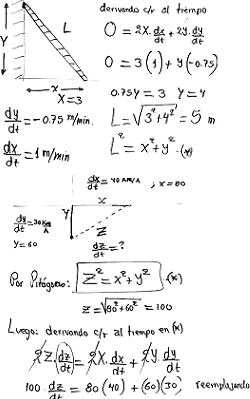 derivando c/r al tiempo
Y L
x
X=3
O = 2X.dx/dt + 2y.dy/dt
O = 3(1) + y(-0.75)
0.75Y = 3 Y=4
dy/dt = -0.75 m/min.
L = √3²+4² = 5 m
dx/dt = 1 m/min
L² = x²+y² (*)
dx/dt = 40 km/h ; x=80
x
dy/dt = 30 km/h
Y Z
y=60
dz/dt = ?
Por Pitágoras: Z² = x²+y² (*)
Z = √80²+60² = 100
Luego: derivando c/r al tiempo en (*)
2Z.dz/dt = 2X.dx/dt + 2Y.dy/dt
100.dz/dt = 80(40) + (60)(30) reemplazando